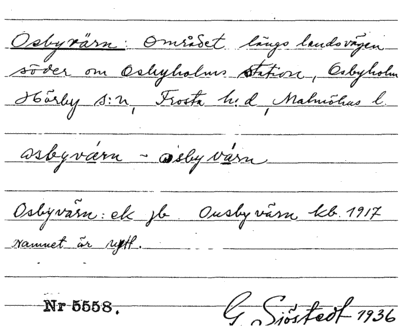 Osbyvärn: området längs landsvägen
söder om Osbyholms station, Osbyholm
Hörby s:n, Frosta hd, Malmöhus l.
osbyvärn - osbyvärn
Osbyvärn: ek jb Ousbyvärn kb. 1917
namnet är nytt.
Nr 5558. G Sjöstedt 1936